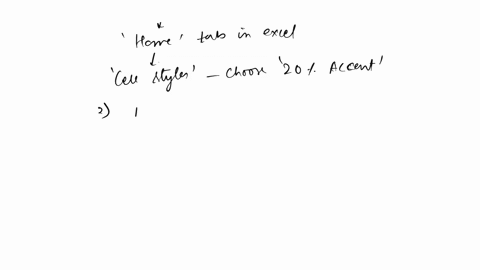 'Home' tab in excel
'Cell styles' – choose '20% Accent'
2)